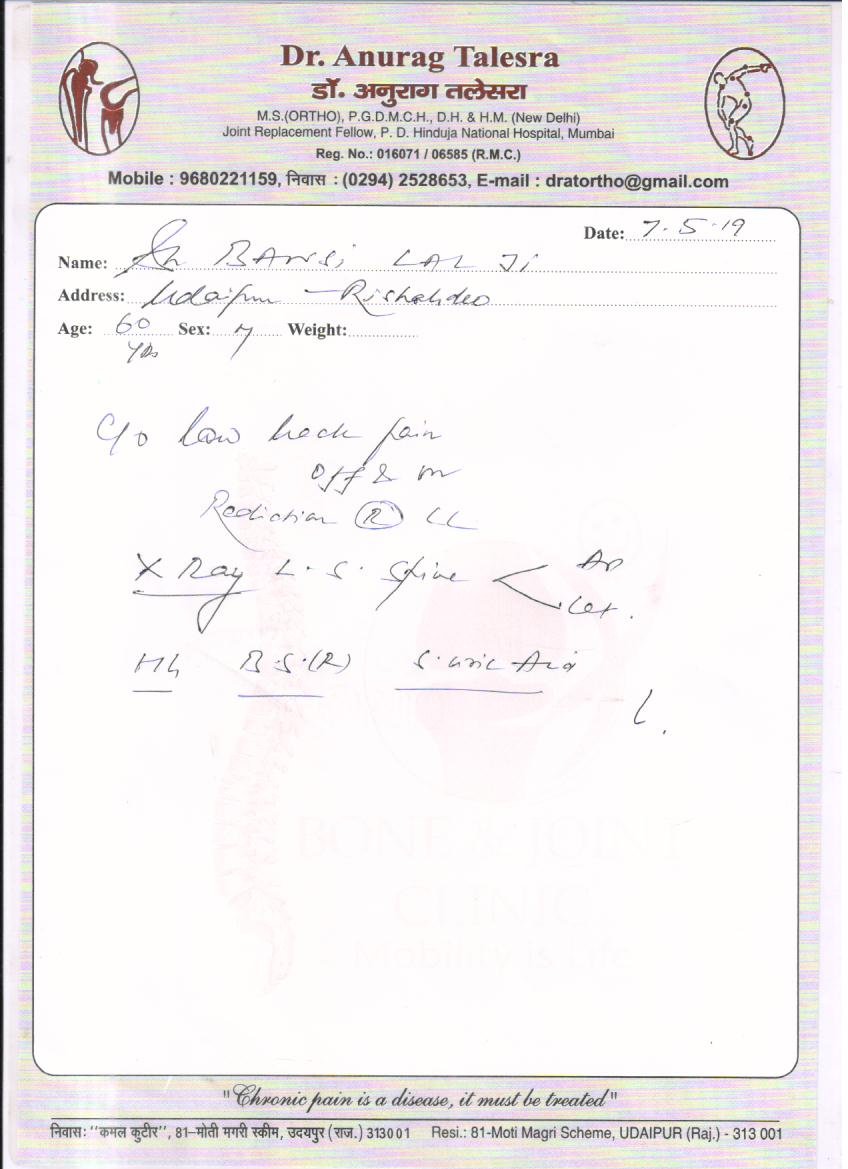 Dr. Anurag Talesra
डॉ. अनुराग तलेसरा
M.S.(ORTHO), P.G.D.M.C.H., D.H. & H.M. (New Delhi)
Joint Replacement Fellow, P. D. Hinduja National Hospital, Mumbai
Reg. No.: 016071 / 06585 (R.M.C.)
Mobile : 9680221159, निवास : (0294) 2528653, E-mail : dratortho@gmail.com
Date: 7.5.19
Name: Sh BANSi LAL Ji
Address: Udaipur - Rishabdeo
Age: 60 Sex: M Weight:
yrs
C/o low back pain
off & on
Radiation (R) LL
X Ray L.S. Spine < AP
Lat.
Hb B.S.(R) S. uric Acid
BONE & JOINT
CLINIC
Mobility is Life
"Chronic pain is a disease, it must be treated"
निवास: "कमल कुटीर", 81-मोती मगरी स्कीम, उदयपुर (राज.) 313001 Resi.: 81-Moti Magri Scheme, UDAIPUR (Raj.) - 313 001